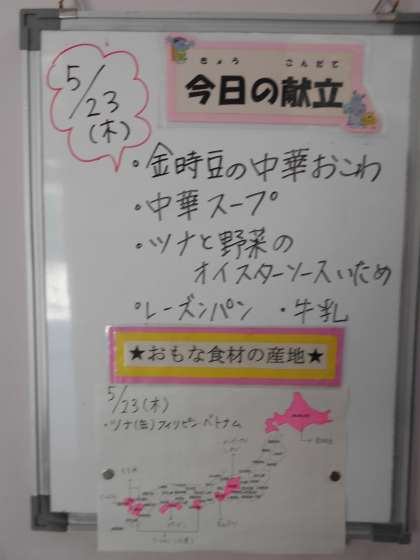 5/23
(木)
きょう こんだて
今日の献立
・金時豆の中華おこわ
・中華スープ
・ツナと野菜の
オイスターソースいため
・レーズンパン ・牛乳
★おもな食材の産地★
5/23(木)
・ツナ(缶)フィリピン・ベトナム